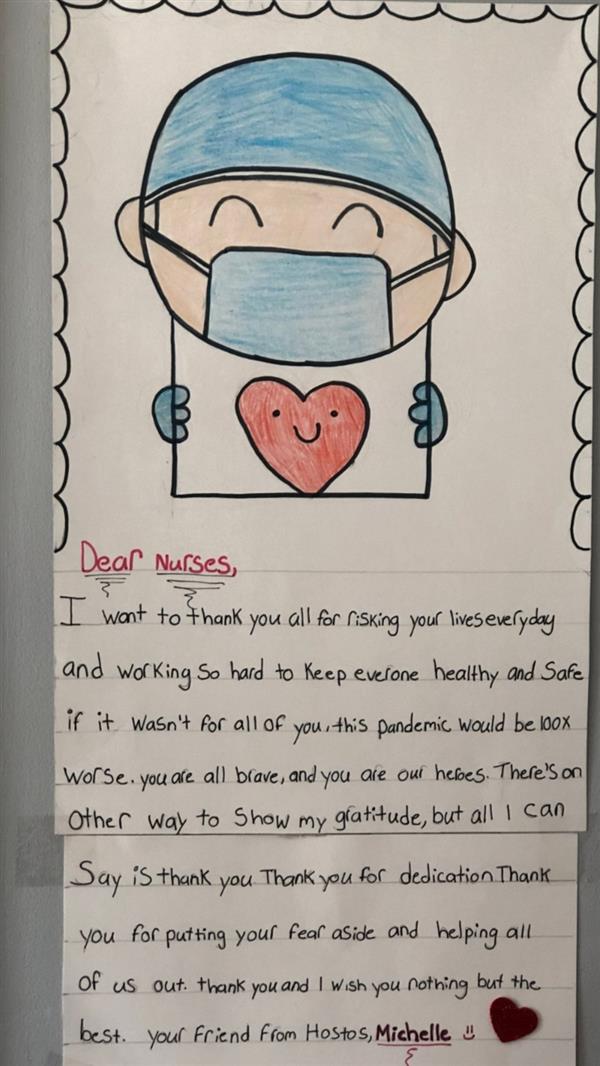 Dear Nurses,
I want to thank you all for risking your lives everyday
and working so hard to keep everone healthy and safe
if it wasn't for all of you, this pandemic would be 100x
worse. you are all brave, and you are our heroes. There's on
other way to show my gratitude, but all I can
Say is thank you Thank you for dedication Thank
you for putting your fear aside and helping all
of us out. thank you and I wish you nothing but the
best. your friend from Hostos, Michelle